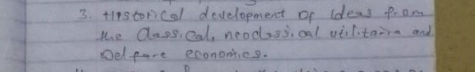 3. Historical development of ideas from
the Classical, neoclassical utilitaria and
Welfare economics.